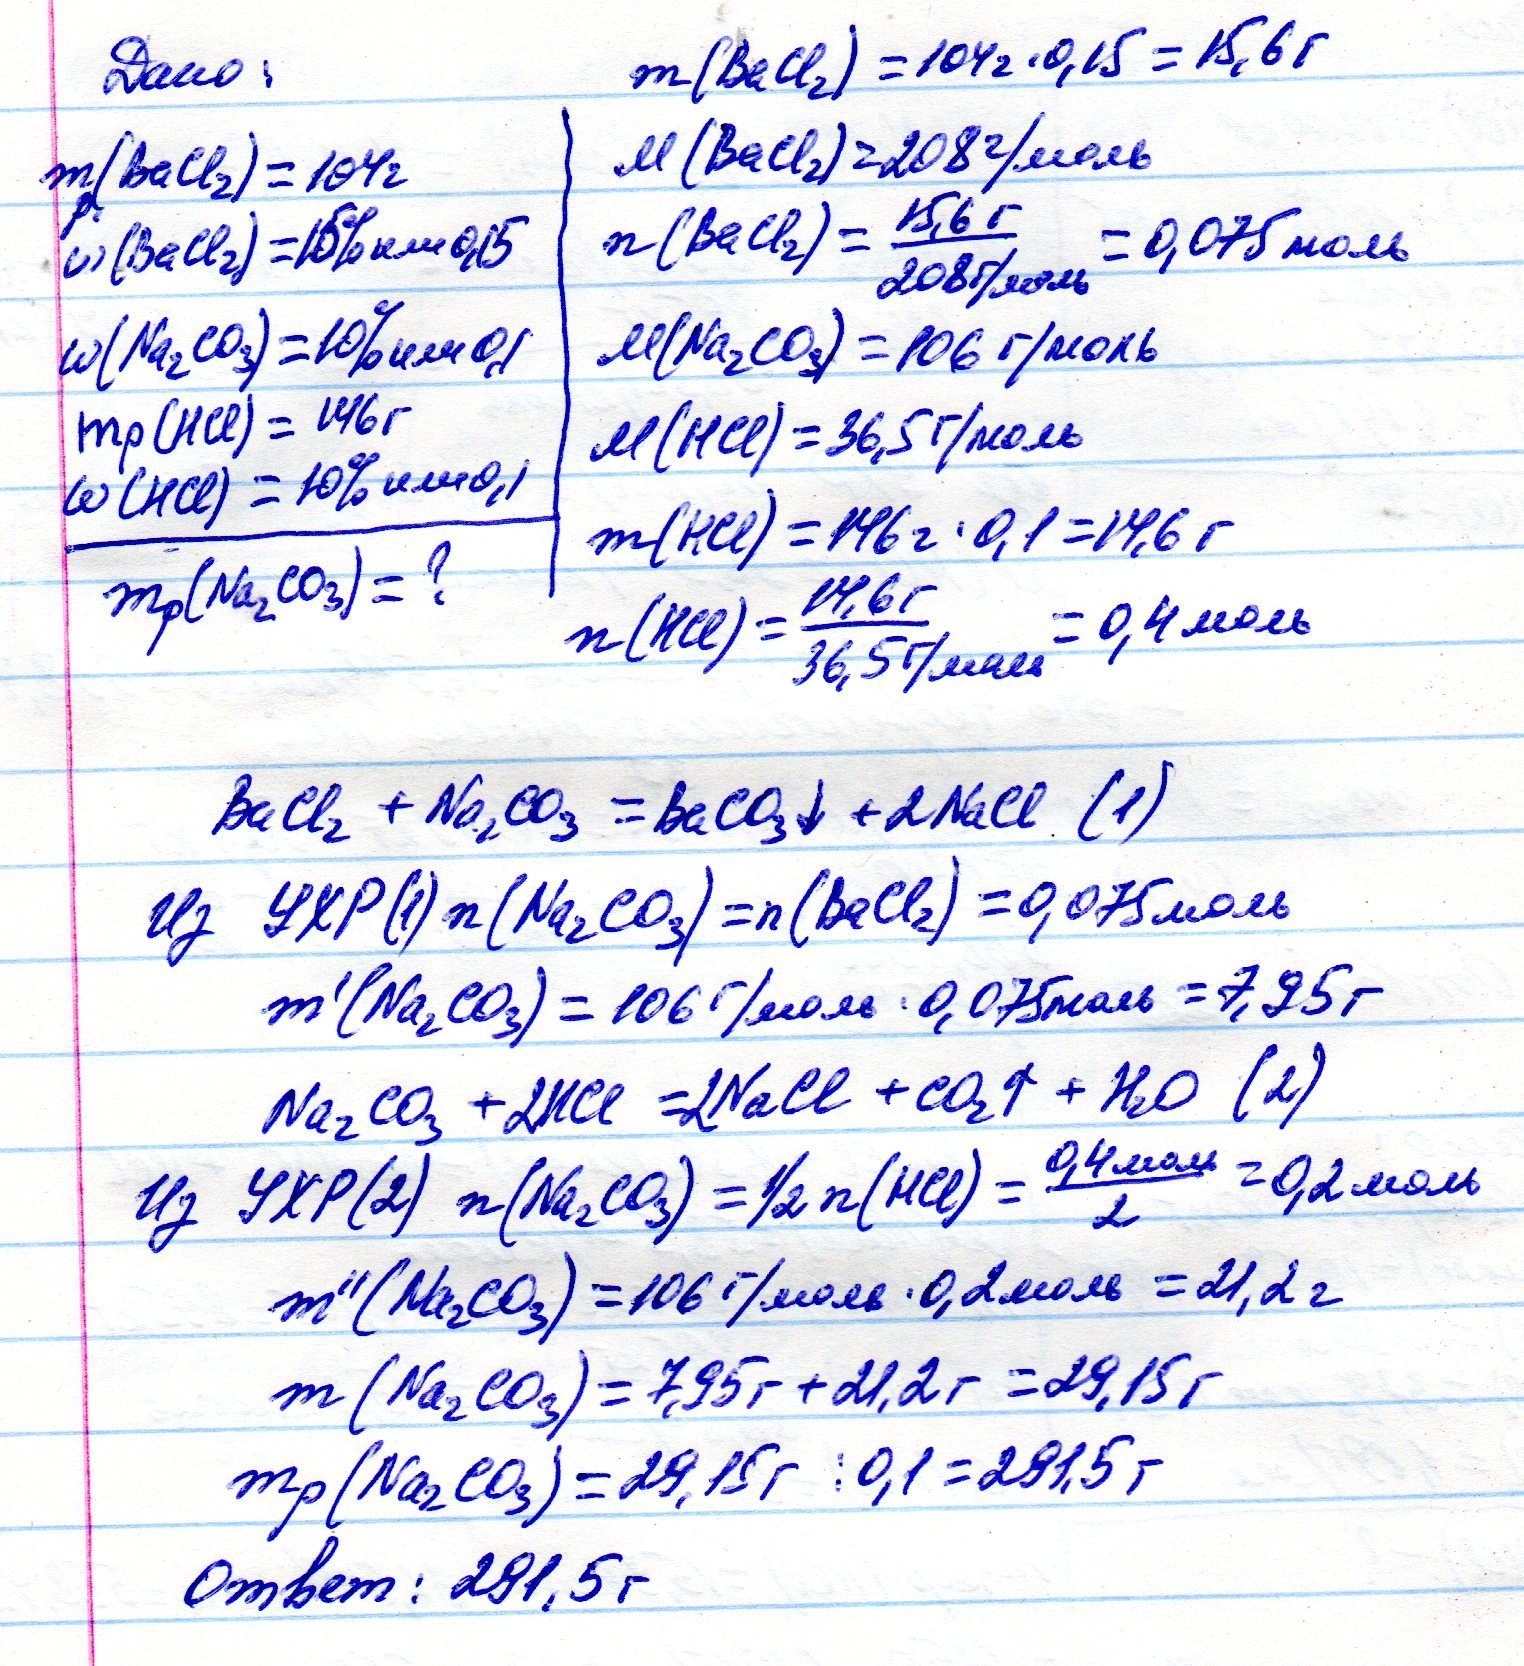 Дано:
mр(BaCl₂) = 104г
w(BaCl₂) = 15% или 0,15
w(Na₂CO₃) = 10% или 0,1
mр(HCl) = 146г
w(HCl) = 10% или 0,1
mр(Na₂CO₃) = ?
m(BaCl₂) = 104г · 0,15 = 15,6г
M(BaCl₂) = 208г/моль
n(BaCl₂) = 15,6г / 208г/моль = 0,075моль
M(Na₂CO₃) = 106 г/моль
M(HCl) = 36,5г/моль
m(HCl) = 146г · 0,1 = 14,6г
n(HCl) = 14,6г / 36,5г/моль = 0,4 моль
BaCl₂ + Na₂CO₃ = BaCO₃↓ + 2NaCl (1)
Из УХР(1) n(Na₂CO₃) = n(BaCl₂) = 0,075моль
m'(Na₂CO₃) = 106 г/моль · 0,075моль = 7,95г
Na₂CO₃ + 2HCl = 2NaCl + CO₂↑ + H₂O (2)
Из УХР(2) n(Na₂CO₃) = 1/2 n(HCl) = 0,4моль / 2 = 0,2моль
m"(Na₂CO₃) = 106 г/моль · 0,2моль = 21,2г
m(Na₂CO₃) = 7,95г + 21,2г = 29,15г
mр(Na₂CO₃) = 29,15г : 0,1 = 291,5г
Ответ: 291,5г